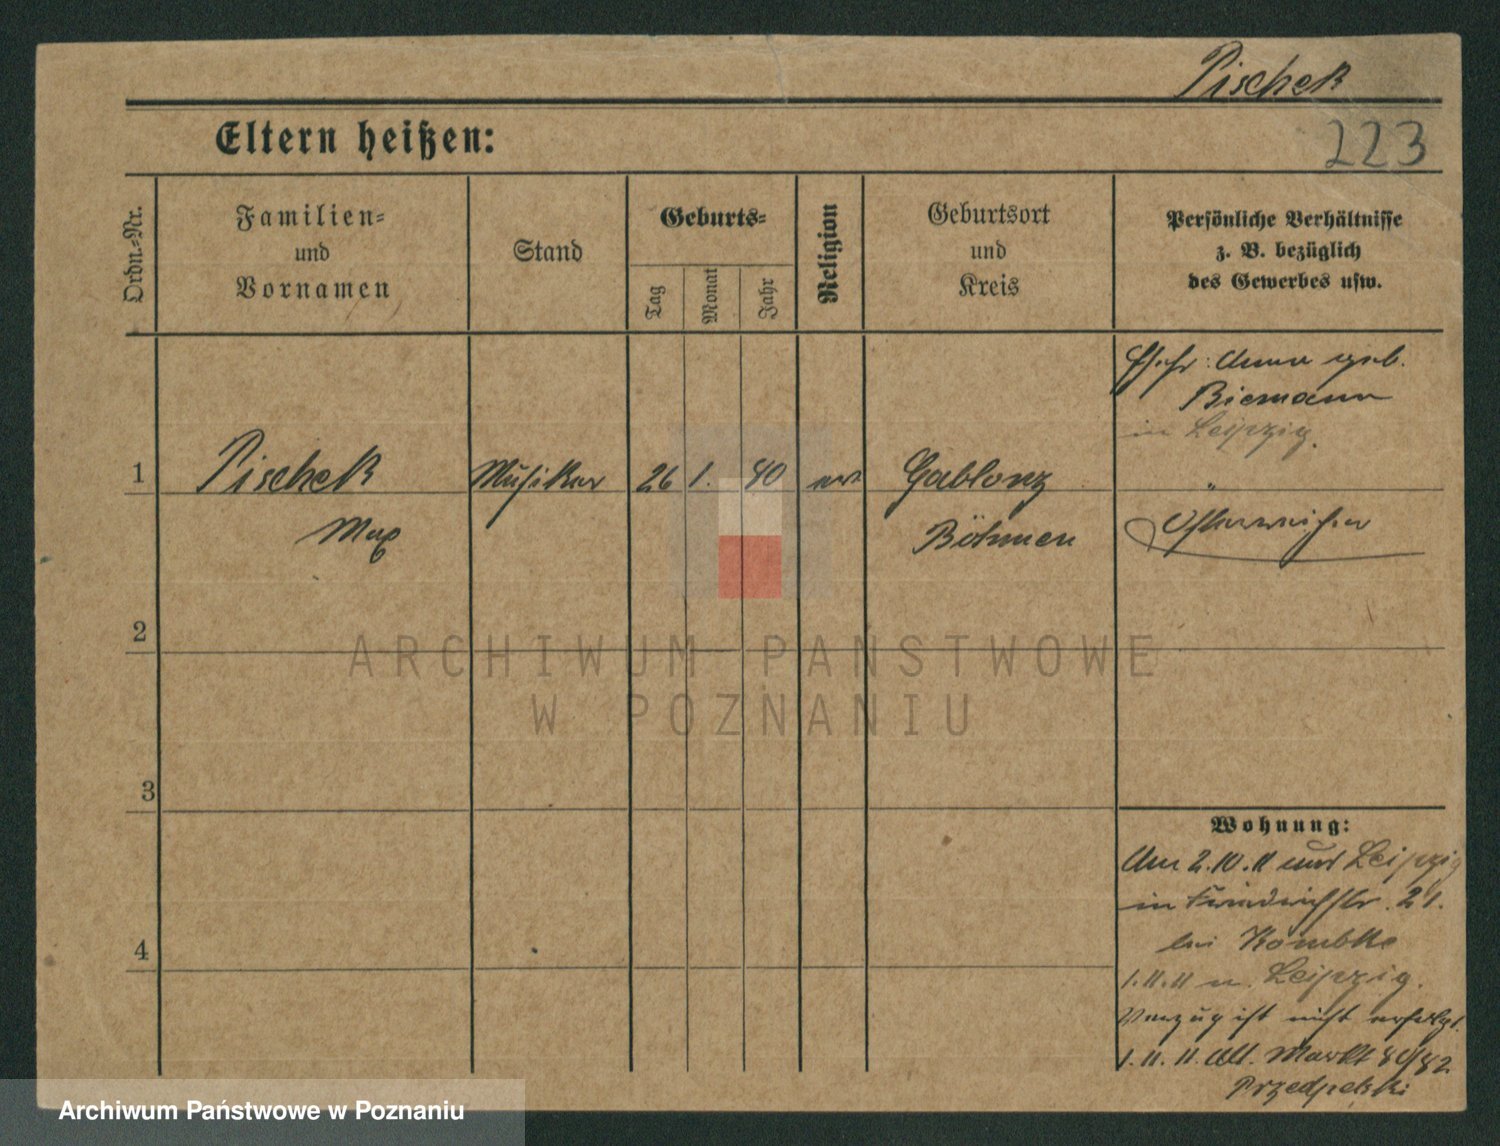 Pischek
223
Eltern heißen:
Ordn.=Nr.
Familien=
und
Vornamen
Stand
Geburts=
Tag
Monat
Jahr
Religion
Geburtsort
und
Kreis
Persönliche Verhältnisse
z. B. bezüglich
des Gewerbes usw.
Ehefr: Anna geb.
Biemann
in Leipzig.
1 Pischek Musiker 26 1. 80 Gablonz
Max Böhmen Österreicher
2
3
4
Wohnung:
Am 2.10.11 aus Leipzig
in Friedrichstr. 21.
bei Kombke
1.11.11 n. Leipzig.
Verzug ist nicht erfolgt.
1.11.11 Alt. Markt 81/82
ARCHIWUM PAŃSTWOWE
W POZNANIU
Archiwum Państwowe w Poznaniu